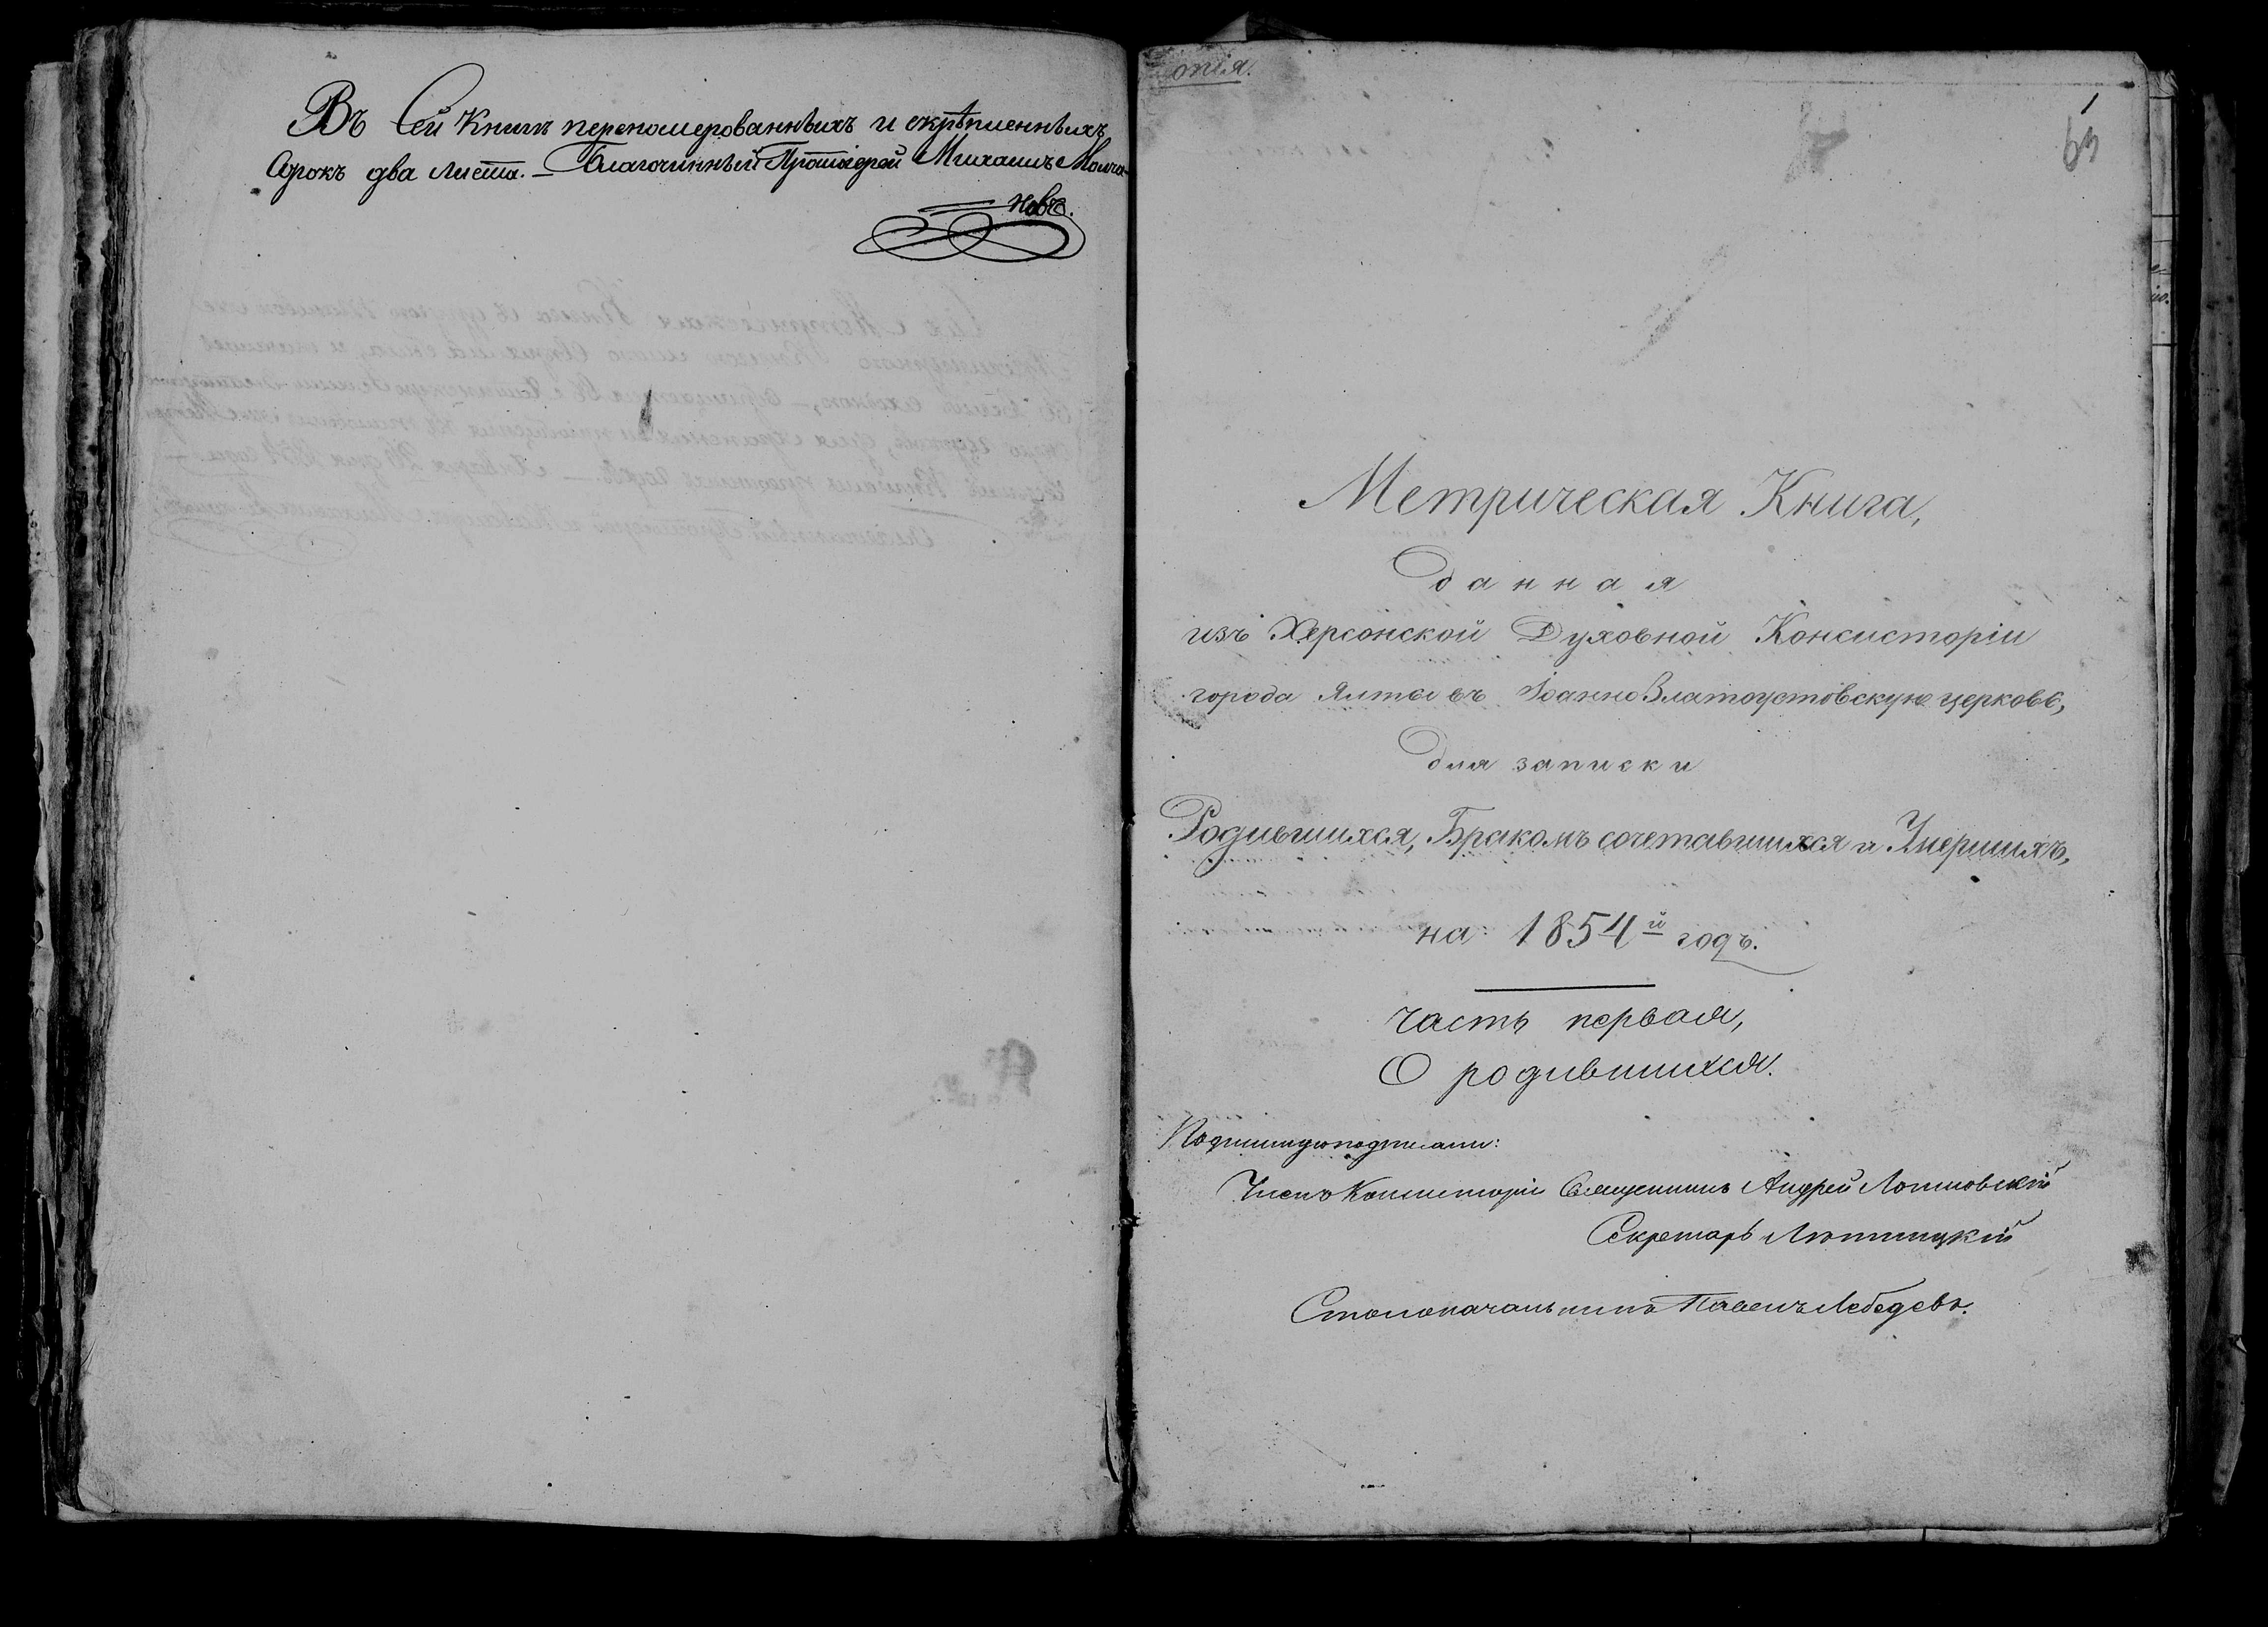 Въ Сей Книгѣ перенумерованныхъ и скрѣпленныхъ
Сорокъ два листа. — Благочинный Протоіерей Михаилъ Молча-
новъ.
опія.
1
63
Метрическая Книга,
данная
изъ Херсонской Духовной Консисторіи
города Ялты въ ІоанноЗлатоустовскую церковь,
для записки
Родившихся, Бракомъ сочетавшихся и Умершихъ,
на 1854й годъ.
Часть первая,
О родившихся.
Подлинную подписали:
Членъ Консисторіи Священникъ Андрей
Секретарь
Столоначальникъ Павелъ Лебедевъ.